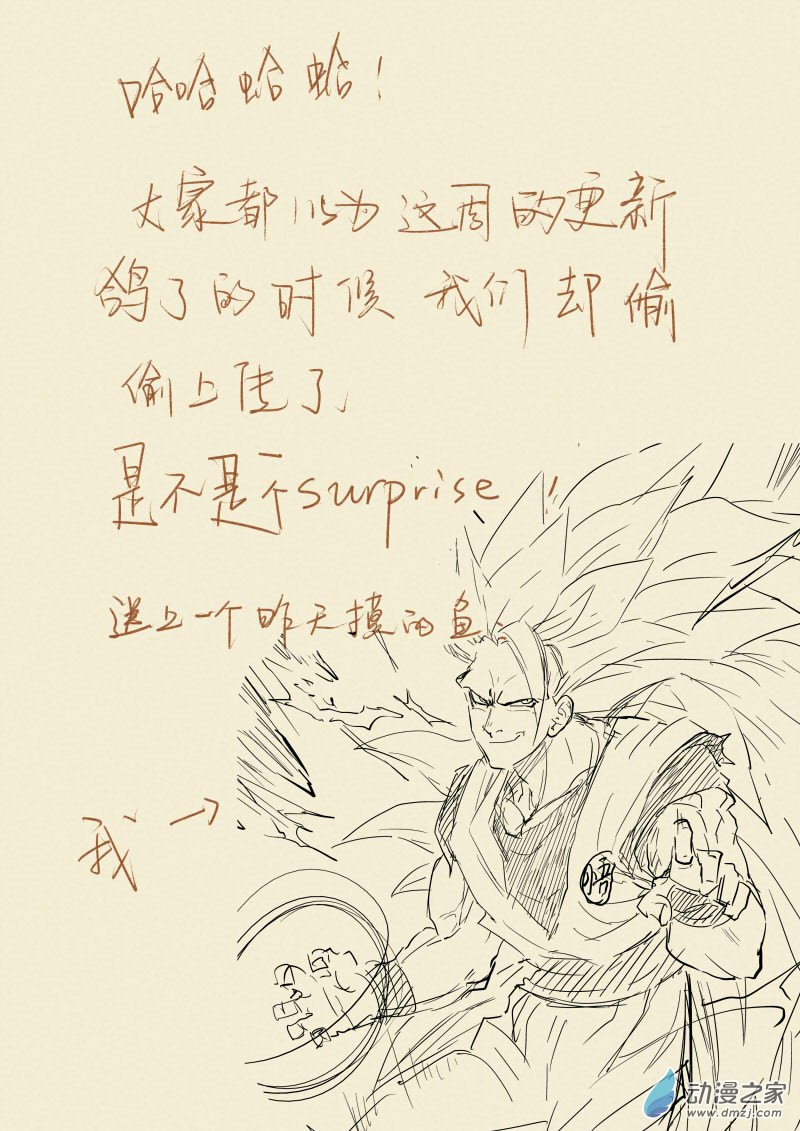 哈哈蛤蛤!
大家都以为这周的更新
鸽了的时候 我们却偷
偷上传了
是不是个surprise!
送上一个昨天摸的鱼.
我→
悟
动漫之家
www.dmzj.com